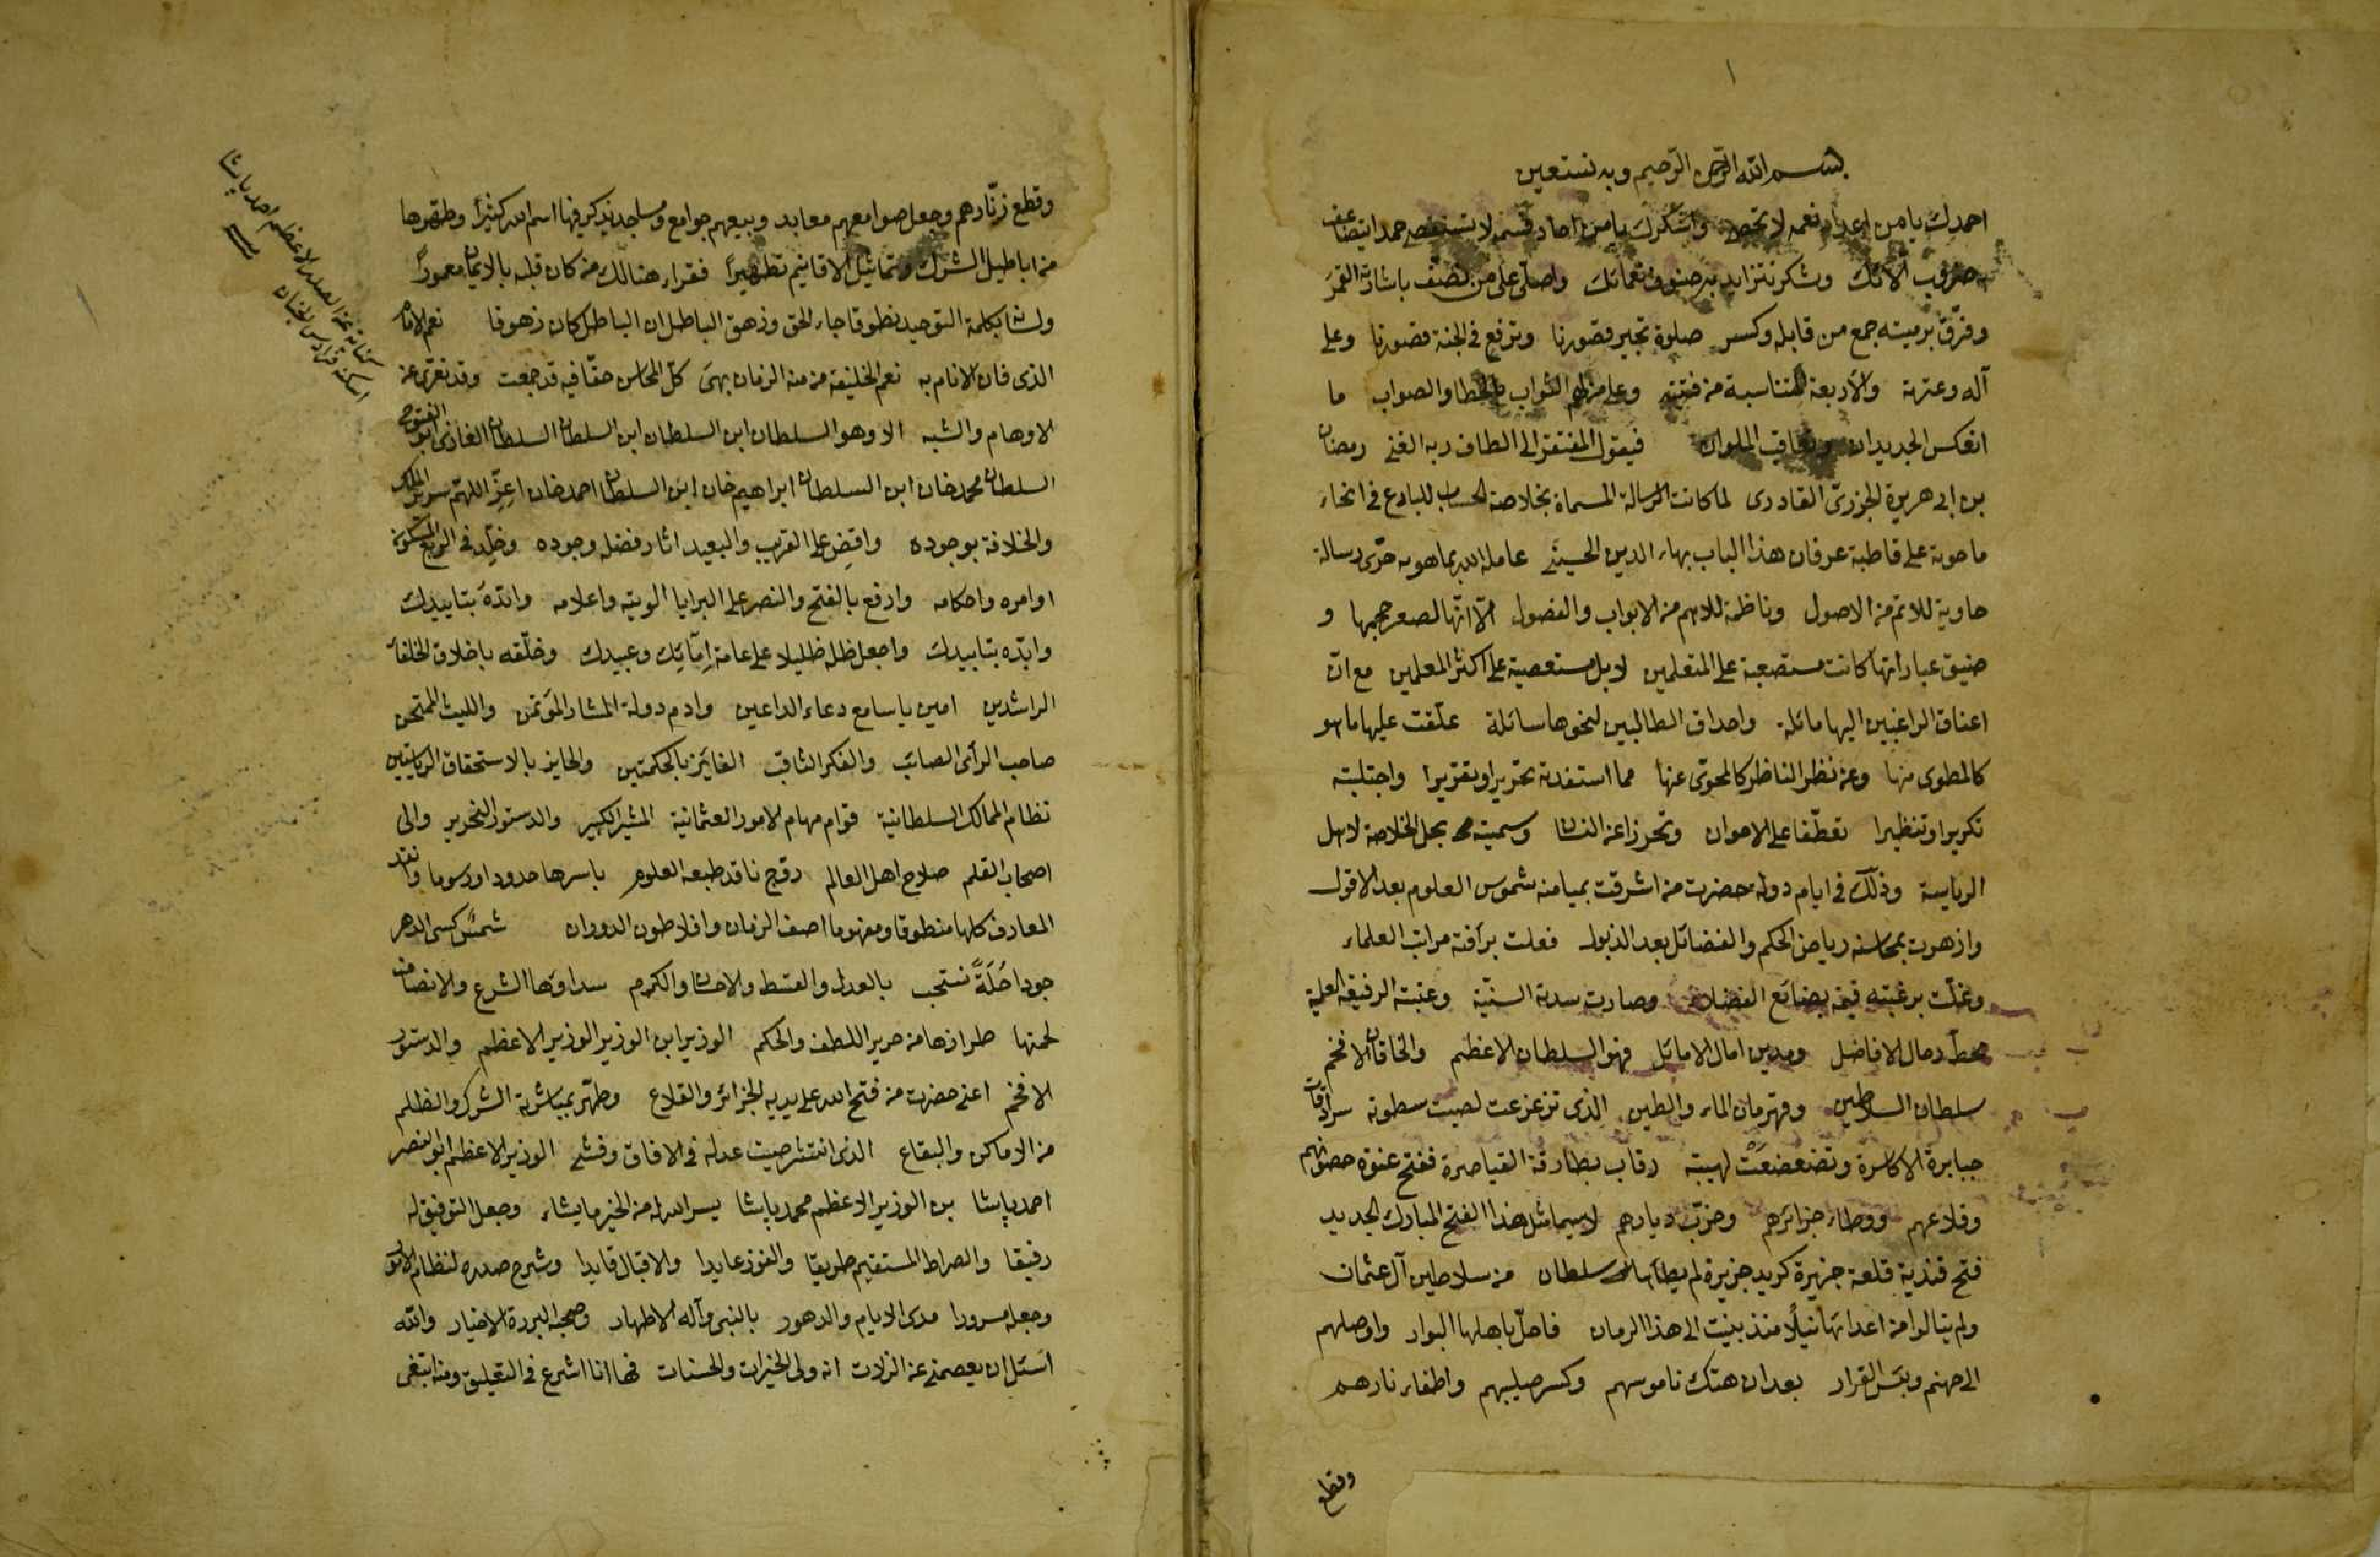 ١
بسم الله الرحمن الرحيم وبه نستعين
احمدك يا من اعداد نعمه لا تحصى واشكرك يا من احاد قسمه لا تستقصى حمدا يتضاعف
به ضروب آلائك وشكر تتزايد به صنوف نعمائك واصلي على من نصف باشارته القمر
وفرق برميته جمع من قابله وكسر صلوة تجبر قصورنا وترفع في الجنة قصورنا وعلى
آله وعترته والاربعة المتناسبة من فتيته وعلى من لهم الثواب بالخطا والصواب ما
انعكس الجديدان وتعاقب الملوان فيقول المفتقر الى الطاف ربه الغني رمضان
بن ابي هريرة الجزري القادري لما كانت الرسالة المسماة بخلاصة الحساب للبارع في انحاء
ما حوته على قاطبة عرفان هذا الباب بهاء الدين الحسيني عامله الله بما هو به حرى رسالة
حاوية للاتم من الاصول وناظمة للاهم من الابواب والفصول الا انها لصغر حجمها و
ضيق عباراتها كانت مستصعبة على المتعلمين لا بل مستعصية على اكثر المعلمين مع ان
اعناق الراغبين اليها مائلة واحداق الطالبين لنحوها سائلة علقت عليها ما هو
كالمطوى منها وعن نظر الناظر كالمحوى عنها مما استفدته تحريرا وتقريرا واجتلبته
تكريرا وتنظيرا تعطفا على الاخوان وتحرزا عن النسيان وسميته بحل الخلاصة لاهل
الرياسة وذلك في ايام دولة حضرت من اشرقت بميامنه شموس العلوم بعد الافول
وازهرت بمحاسنه رياض الحكم والفضائل بعد الذبول فعلت برأفته مراتب العلماء
وغلت برغبته قيمة بضائع الفضلاء وصارت سدته السنية وعتبته الرفيعة العلية
محط رحال الافاضل ومدين امال الاماثل فهو السلطان الاعظم والخاقان الافخم
سلطان السلاطين وقهرمان الماء والطين الذي تزعزعت لصيت سطوته سرادقات
جبابرة الاكاسرة وتضعضعت لهيبته رقاب بطارقة القياصرة ففتح عنوة حصونهم
وقلاعهم ووطاء جزائرهم وخرب ديارهم لا سيما مثل هذا الفتح المبارك الجديد
فتح قندية قلعة جزيرة كريد جزيرة لم يطأها سلطان من سلاطين آل عثمان
ولم ينالوا من اعدائها نيلا منذ بنيت الى هذا الزمان فاحل باهلها البوار واوصلهم
الى جهنم وبئس القرار بعد ان هتك ناموسهم وكسر صليبهم واطفاء نارهم
وقطع
وقطع زنارهم وجعل صوامعهم معابد وبيعهم جوامع ومساجد يذكر فيها اسم الله كثيرا وطهرها
من اباطيل الشرك وتماثيل الاقانيم تطهيرا فقراء هنالك من كان قلبه بالايمان معمورا
ولسانه بكلمة التوحيد نطوقا جاء الحق وزهق الباطل ان الباطل كان زهوقا نعم الامام
الذي فان الانام به نعم الخليفة من منه الزمان بهى كل المحاسن حقا فيه قد جمعت وقد تعرى عن
الاوهام والشبه الا وهو السلطان ابن السلطان ابن السلطان السلطان الغازي ابو الفتوح
السلطان محمد خان ابن السلطان ابراهيم خان ابن السلطان احمد خان اعز اللهم سرير الملك
والخلافة بوجوده وافض على القريب والبعيد اثار فضله وجوده وخلد في الربع المسكون
اوامره واحكامه وارفع بالفتح والنصر على البرايا الويته واعلامه وايده بتاييدك
وابده بتابيدك واجعل ظله ظليلا على عامة إمائك وعبيدك وخلقه باخلاق الخلفاء
الراشدين امين يا سامع دعاء الداعين وادم دولة المشار المؤتمن والليث الممتحن
صاحب الرأى الصائب والفكر الثاقب الفائز بالحكمتين والحايز بالاستحقاق الرياستين
نظام الممالك السلطانية قوام مهام الامور العثمانية المشير الكبير والدستور النحرير والى
اصحاب القلم صلاح اهل العالم روّج ناقد طبعه العلوم باسرها حدودا ورسوما وانقد
المعارف كلها منطوقا ومفهوما اصف الزمان وافلاطون الدوران شمس كسى الدهر
جودا حلة نسجت بالعدل والقسط والاحسان والكرم سداوها الشرع والانصاف
لحمتها طرازها من حرير اللطف والحكم الوزير ابن الوزير الوزير الاعظم والدستور
الافخم اعني حضرت من فتح الله على يديه الجزائر والقلاع وطهر بمباشرته الشرك والظلم
من الاماكن والبقاع الذي انتشر صيت عدله في الافاق وفشى الوزير الاعظم ابو النصر
احمد پاشا بن الوزير الاعظم محمد پاشا يسر الله له من الخير ما يشاء وجعل التوفيق له
رفيقا والصراط المستقيم طريقا والفوز عايدا والاقبال قايدا وشرح صدره لنظام الامور
وجعله مسرورا مدى الايام والدهور بالنبى وآله الاطهار وصحبه البررة الاخيار والله
اسئل ان يعصمني عن الزلات انه ولى الخيرات والحسنات فها انا اشرع في التعليق ومنه ابتغى
الصدر الاعظم احمد پاشا
اسكنه فراديس الجنان